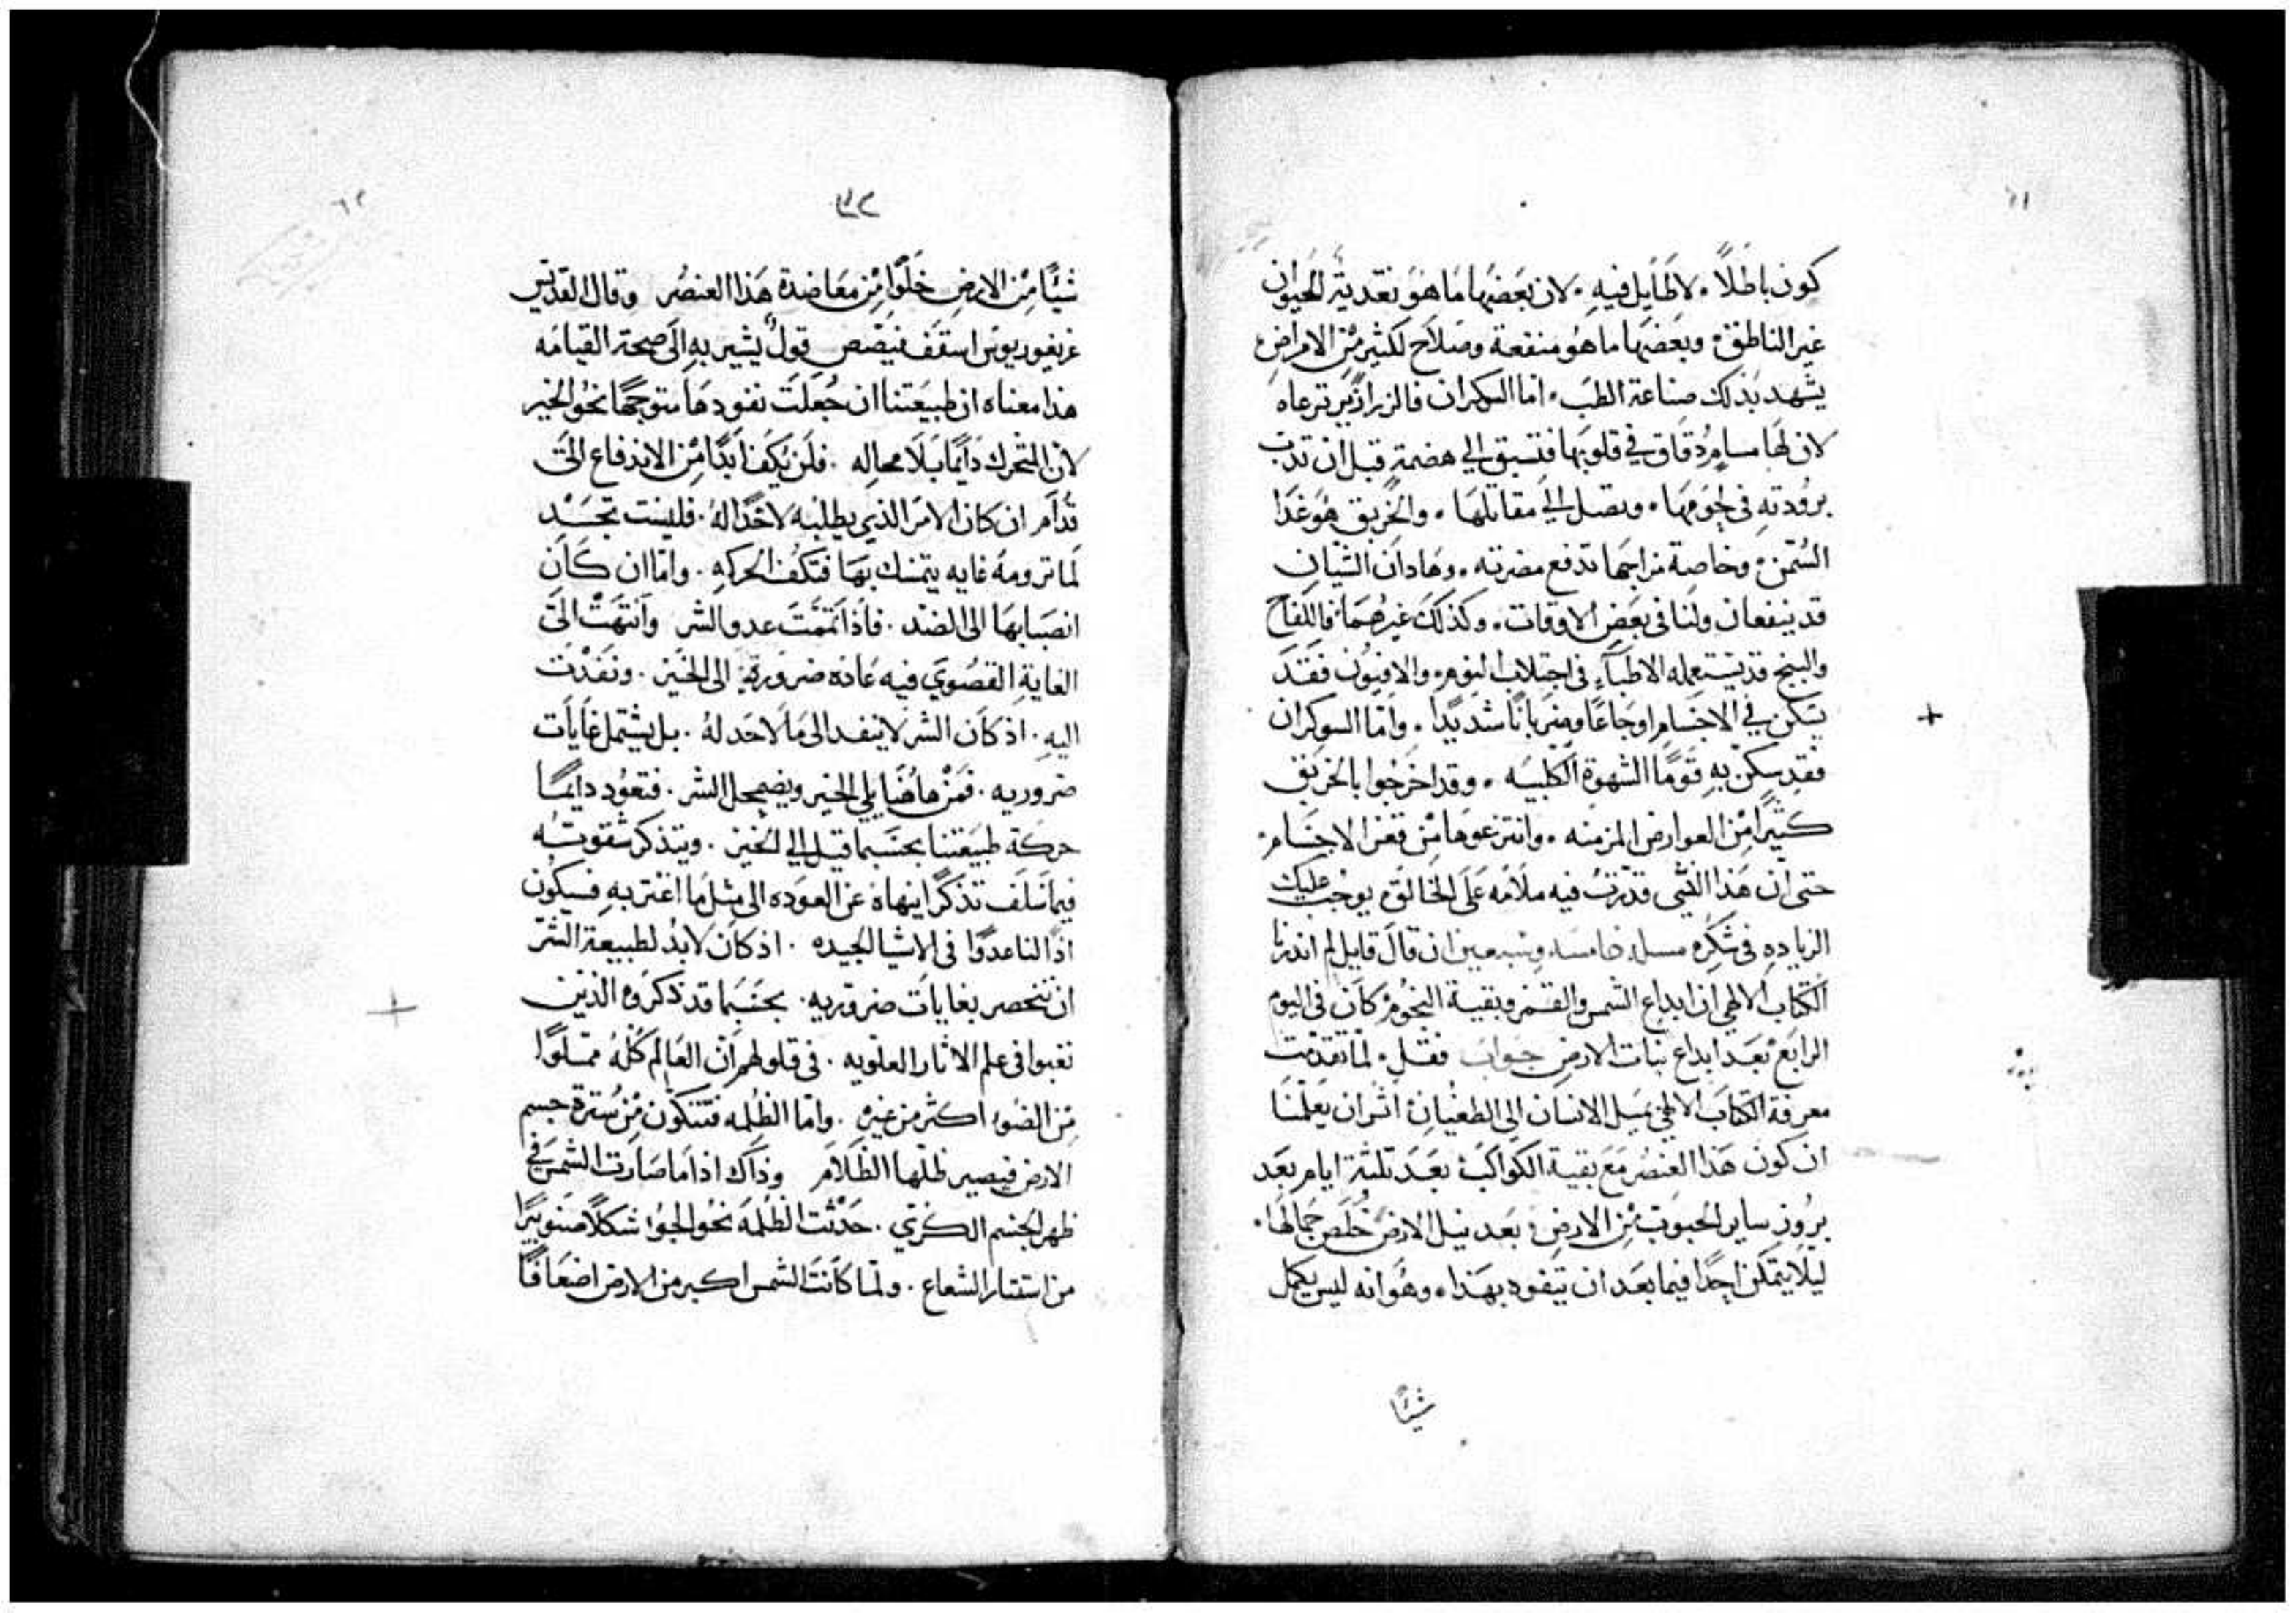 كون باطلاً. لاطايل فيه. لان بعضها ما هو تغدية الحيوان
غير الناطق. وبعضها ما هو منفعة وصلاح لكثير من الامراض
يشهد بذلك صناعة الطب. اما السوكران فالزرازير ترعاه
لان لها مسام دقاق في قلوبها فتسبق الي هضمه قبل ان تدب
برودته في اجوافها. وتصل الي مقاتلها. والخربق هو غدا
السمن. وخاصة مزاجها تدفع مضرته. وهادان الشيان
قد ينفعان ولنا في بعض الاوقات. وكذلك غيرهما. فاللفاح
والبنج قد يستعمله الاطبآء في اجتلاب النوم. والافيون فقد
يسكن في الاجسام اوجاعًا وضربانًا شديدًا. واما السوكران
فقد سكن به قومًا الشهوة الكلبيه. وقد اخرجوا بالخربق
كثيرًا من العوارض المزمنه. وانتزعوها من قعر الاجسام.
حتى ان هذا الشي قدرت فيه ملامه على الخالق. يوجب عليك
الزياده في شكره مسله خامسه وسبعين ان قال قايل لم اندرنا
الكتاب الالهي ان ابداع الشمس والقمر وبقية النجوم كان في اليوم
الرابع بعد ابداع نبات الارض جواب فقل. لما تقدمت
معرفة الكتاب الالهي بميل الانسان الى الطغيان. اثر ان يعلمنا
ان كون هذا العنصر مع بقية الكواكب بعد تلثة ايام بعد
بروز ساير الحبوب من الارض. بعد نيل الارض خلص جمالها.
ليلا يتمكن احدًا فيما بعد ان يتفوه بهذا. وهو انه ليس يكمل
شيًا
٦٢
شيًا من الارض خلوًا من معاضدة هذا العنصر وقال القديس
غريغوريوس اسقف نيصص قول يشير به الى صحة القيامه
هذا معناه ان طبيعتنا ان جعلت نفودها متوجهًا نحو الخير
لان المتحرك دايمًا بلا محاله. فلن يكف ابدًا من الاندفاع الى
قدام ان كان الامر الذي يطلبه لا حدًا له. فليست تجد
لما ترومه غايه يتمسك بها فتكف الحركه. واما ان كان
انصبابها الى الضد. فاذا تممت عدو الشر وانتهت الى
الغاية القصوي فيه عاده ضرورية الى الخير. ونفدت
اليه. اذ كان الشر لا ينفد الى ما لا حد له. بل يشتمل غايات
ضروريه. فمن هاهنا يلي الخير ويضمحل الشر. فتعود دايمًا
حركة طبيعتنا بحسبما قيل الي الخير. ويتذكر شقوته
فيما سلف تذكرًا ينهاه عن العوده الى مثل ما اغتر به فسيكون
اذًا لنا عدوًا في الاشيا الجيده. اذ كان لابد لطبيعة الشر
ان تنحصر بغايات ضروريه. بحسبما قد ذكروه الذين
نقبوا في علم الاثار العلويه. في قولهم ان العالم كله مملوًا
من الضوء اكثر من غيره. واما الظلمه فتتكون من سترة جسم
الارض فيصير ظلها الظلام وذاك اذا ما صارت الشمس في
ظهر الجسم الكري. حدثت الظلمه نحو الجو شكلاً صنوبيرًا
من استتار الشعاع. ولما كانت الشمس اكبر من الارض اضعافًا